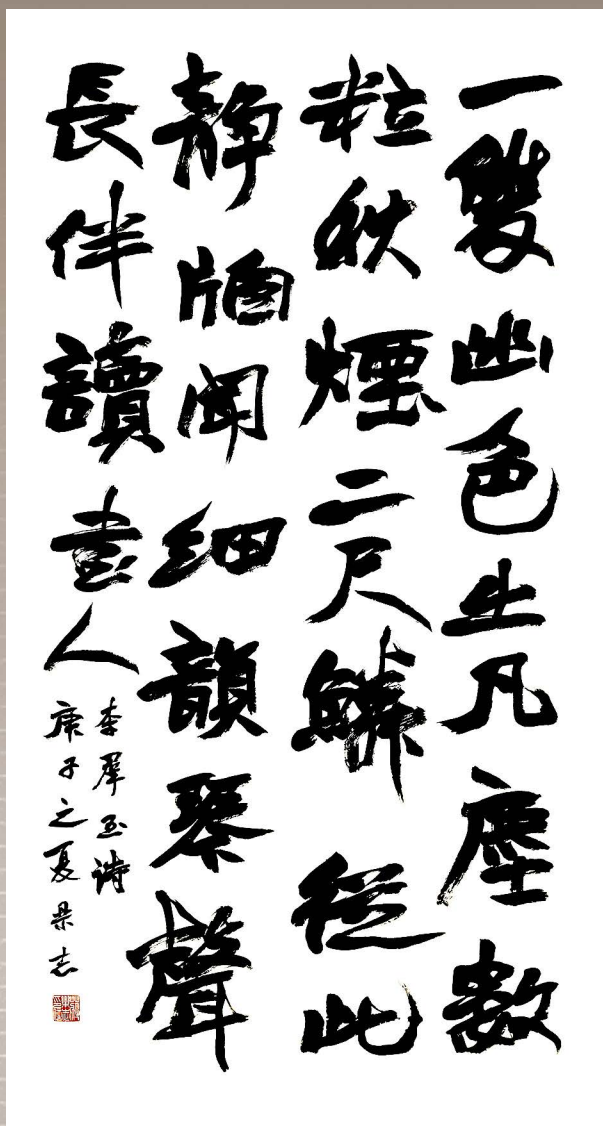 一雙幽色生凡塵數
粒秋煙二尺鱗從此
静牕聞细韻琴聲
長伴讀書人
李羣玉詩
庚子之夏杲志